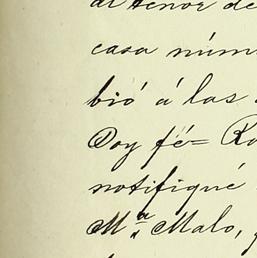 al tenor de
casa núm
bió á las
Doy fé= Ro
notifiqué
Mª Malo,